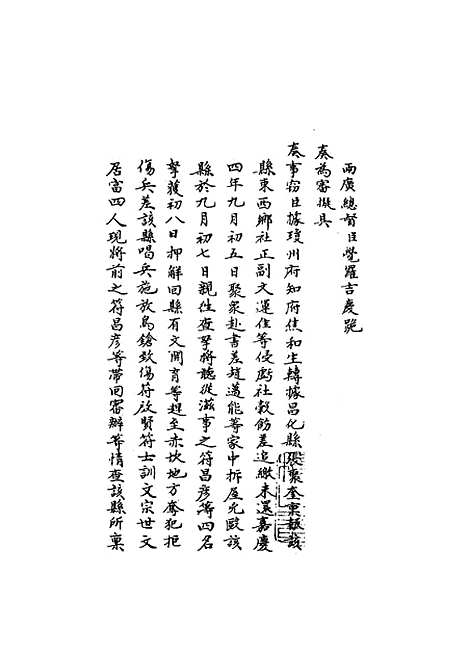 兩廣總督臣覺羅吉慶跪
奏為審擬具
奏事竊臣據瓊州府知府焦和生轉據昌化縣張聚奎稟報該
縣東西鄉社正副文運住等侵虧社穀飭差追繳未還嘉慶
四年九月初五日聚衆赴書差趙邁能等家中拆屋兇毆該
縣於九月初七日親往查拏將聽從滋事之符昌彥等四名
拏獲初八日押解回縣有文開育等趕至赤坎地方奪犯拒
傷兵差該縣喝兵施放鳥鎗致傷符啟賢符士訓文宗世文
居富四人現將前之符昌彥等帶回審辦等情查該縣所稟